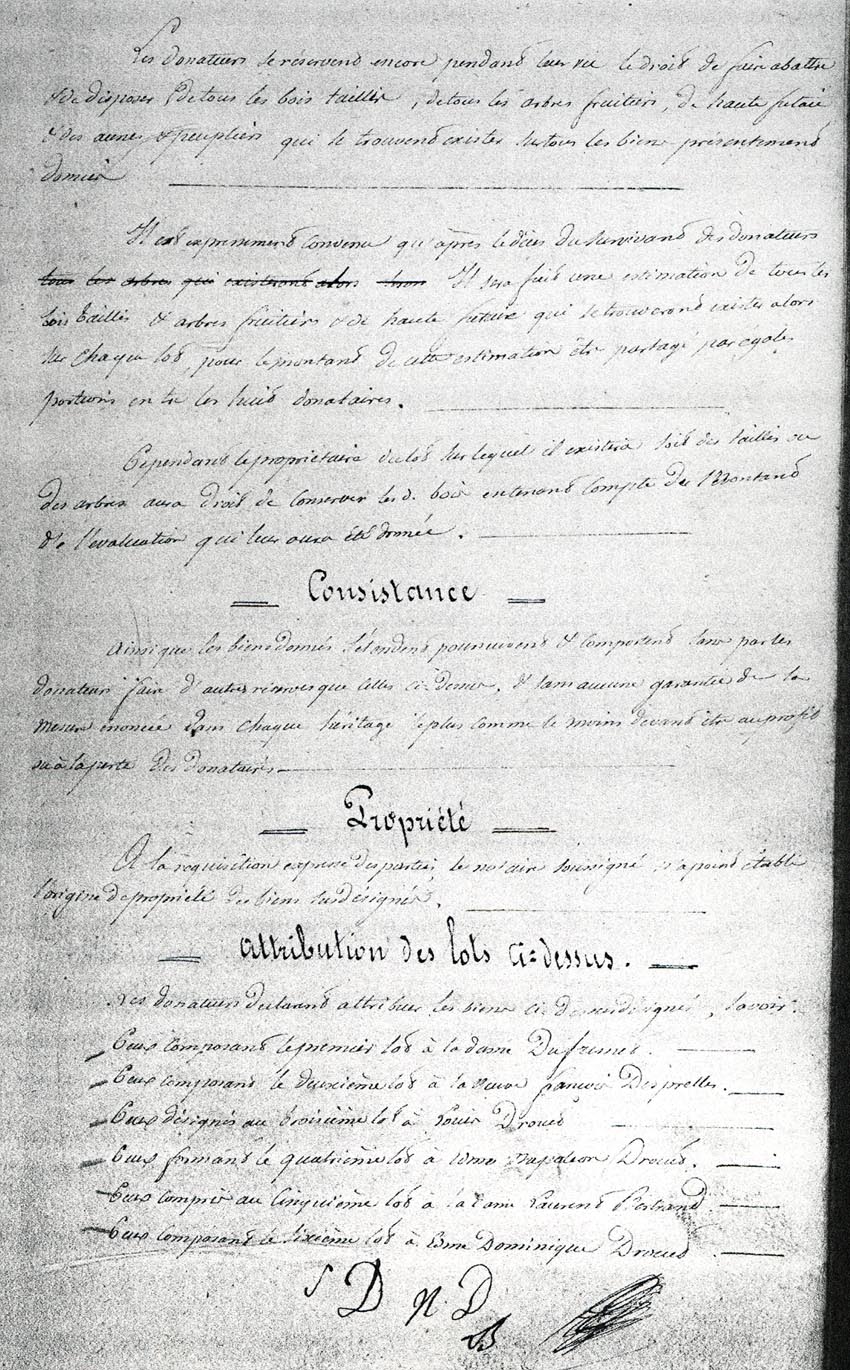 Les donateurs se réservent encore pendant leur vie le droit de faire abattre
& de disposer de tous les bois taillis, de tous les arbres fruitiers, de haute futaie
& des aunes & peupliers qui se trouvent exister sur tous les biens présentement
donnés
Il est expressément convenu qu'après le décès du survivant des donateurs
tous les arbres qui existeront alors Il sera fait une estimation de tous les
bois taillis & arbres fruitiers & de haute futaie qui se trouveront exister alors
sur chaque lot, pour le montant de cette estimation être partagé par égales
portions entre les huit donataires.
Cependant le propriétaire du lot sur lequel il existera soit des taillis ou
des arbres aura droit de conserver les d. bois en tenant compte du montant
de l'évaluation qui leur aura été donnée.
Consistance
Ainsi que les biens donnés s'étendent poursuivent & comportent sans par les
donateurs faire d'autres réserves que celles ci-dessus, & sans aucune garantie de la
mesure énoncée dans chaque héritage le plus comme le moins devant être au profit
ou à la perte des donataires
Propriété
A la réquisition expresse des parties, le notaire soussigné n'a point établi
l'origine de propriété des biens susdésignés.
Attribution des lots ci-dessus.
Les donateurs déclarent attribuer les biens ci-dessus désignés, savoir:
Ceux composant le premier lot à la dame
Ceux composant le deuxième lot à la veuve françois Desprelles.
Ceux désignés au troisième lot à Louis Drouet
Ceux formant le quatrième lot à Napoléon Drouet.
Ceux compris au cinquième lot à la dame Laurent Bertrand
Ceux composant le sixième lot à Dominique Drouet
D N. D